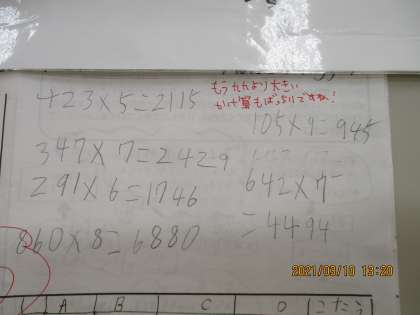 423×5=2115
もう九九より大きい
かけ算もばっちりですね!
105×9=945
347×7=2429
291×6=1746
642×7
=4494
860×8=6880
2021/08/10 13:20
A B C D こたえ